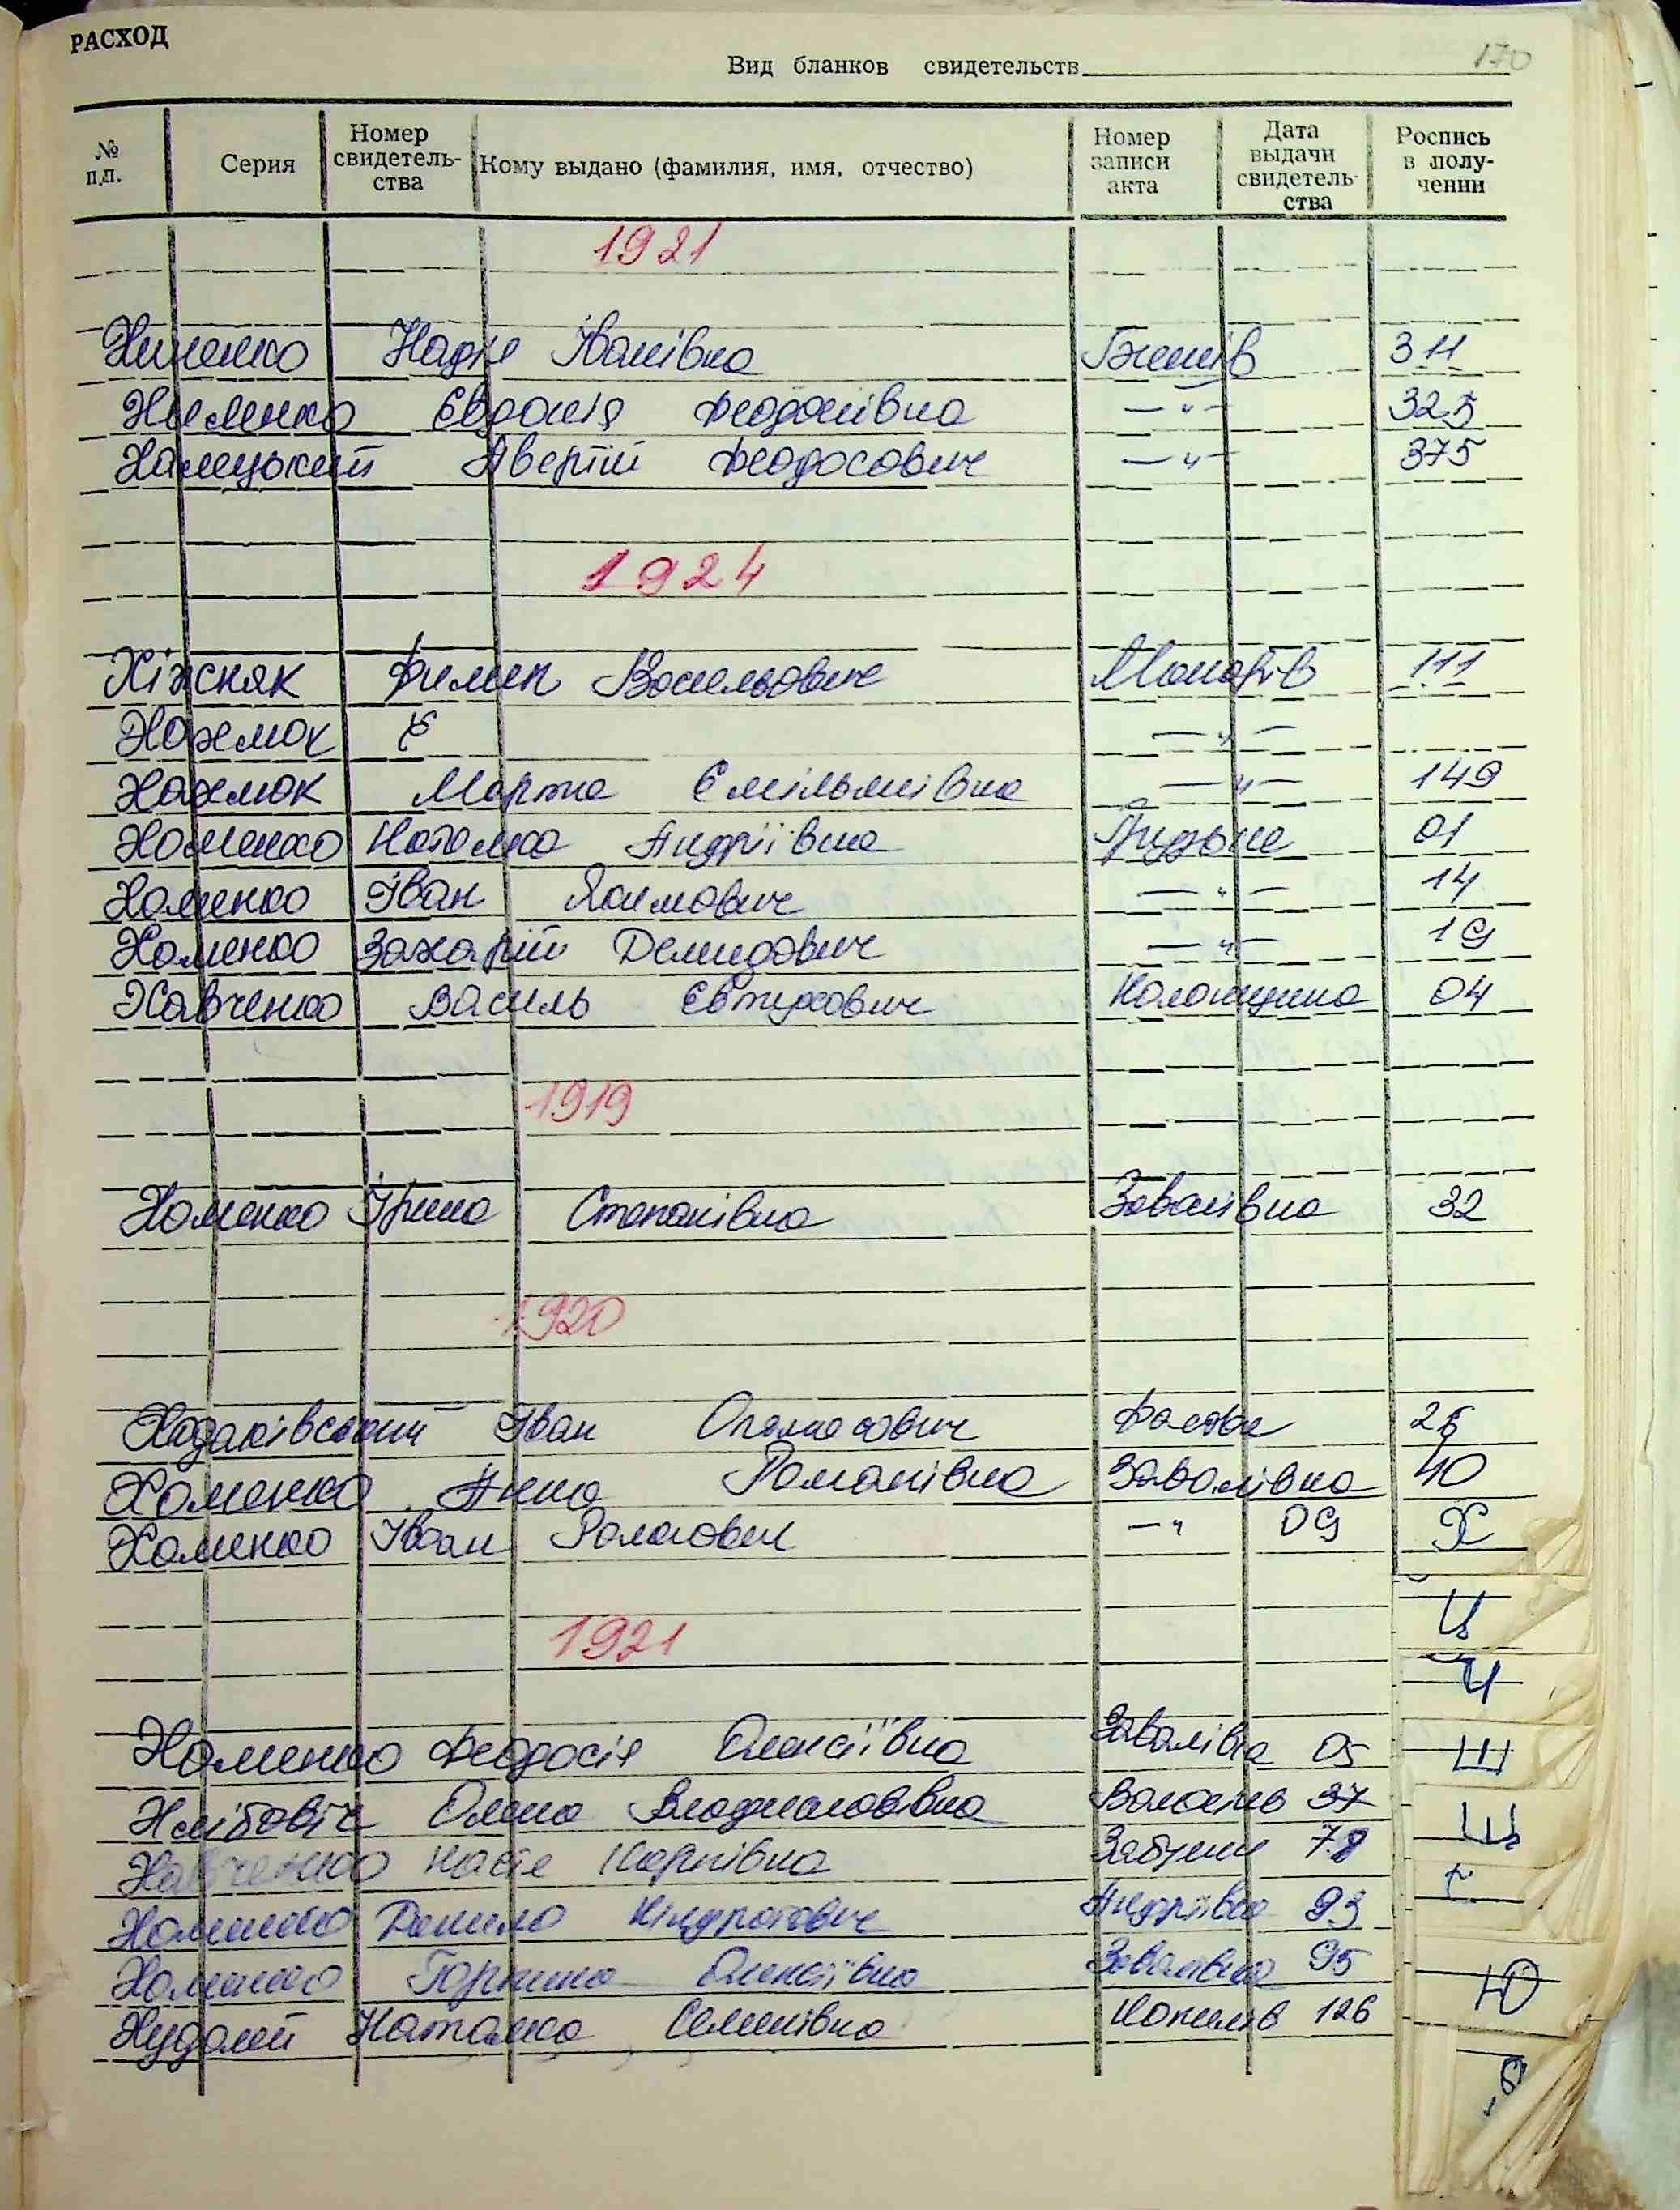 РАСХОД
Вид бланков свидетельств
170
№ п.п.
Серия
Номер свидетель-ства
Кому выдано (фамилия, имя, отчество)
Номер записи акта
Дата выдачи свидетель-ства
Роспись в полу-чении
1921
Надія Іванівна 311
Євдокія Феодосіївна —"— 325
Феодосович —"— 375
1924
Хіжняк Филип Васильович Макарів 111
Є —"—
Марта Омільянівна —"— 149
Хоменко Наталка Андріївна 01
Хоменко Іван Якимович —"— 14
Хоменко Захарій Демидович —"— 19
Хавченко Василь Євтухович Колонщина 04
1919
Хоменко Ірина Степанівна Завалівка 32
1920
Ходаківський Іван Опанасович 26
Хоменко Ніна Романівна Завалівка 40
Хоменко Іван Романович —" 09
Х
Ц
Ч
1921
Хоменко Феодосія Олексіївна Завалівка 05
Ш
Олена 37
Щ
Хавченко Настя Карпівна 78
Хоменко Данило Кіндратович Андріївка 93
Хоменко Горпина Олексіївна Завалівка 95
Ю
Худолій Наталка Семенівна Копилів 126